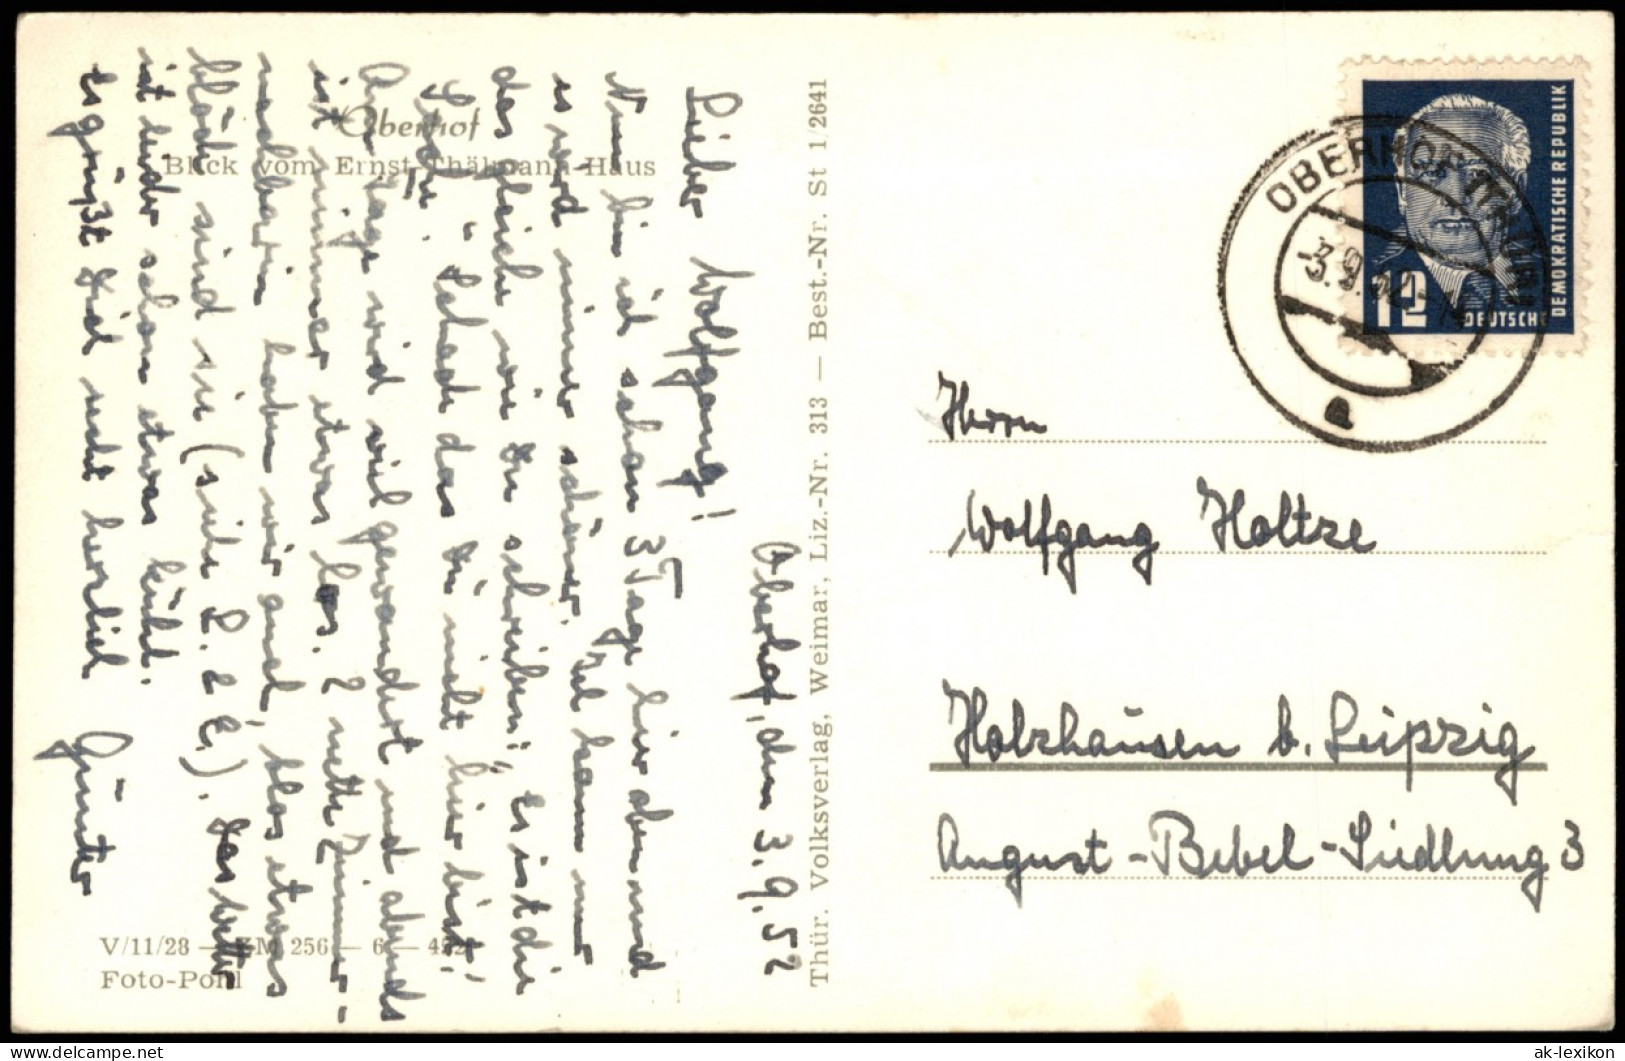 Oberhof, den 3.9.52
Lieber Wolfgang!
Nun bin ich schon 3 Tage hier oben und
es wird immer schöner. Ich kann nur
das gleiche wie Du schreiben: „Es ist die
“ Schade das Du nicht hier bist!
Am Tage wird viel gewandert und abends
ist immer etwas los. 2 nette Zimmer-
nachbarin haben wir auch, blos etwas
blöde sind sie (siehe L. & C.). Das Wetter
ist leider schon etwas kühl.
Es grüßt Dich recht herzlich
Günter
Oberhof
Blick vom Ernst-Thälmann-Haus
V/11/28 — ZM 256 — 6 — 452
Foto-Pohl
Thür. Volksverlag, Weimar, Liz.-Nr. 313 — Best.-Nr. St 1/2641
DEUTSCHE
DEMOKRATISCHE REPUBLIK
12
OBERHOF (THÜR)
3.9.52-14
a
Herrn
Wolfgang Holtze
Holzhausen b. Leipzig
August-Bebel-Siedlung 3
ak-lexikon